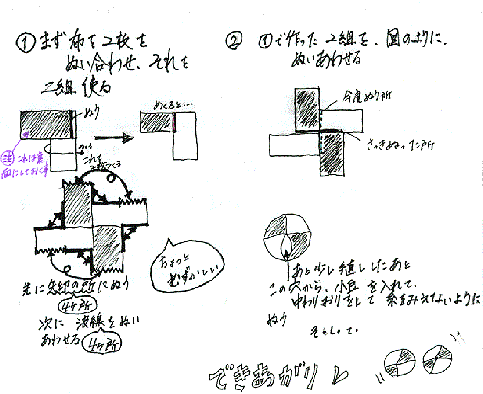 ① まず布を2枚を
ぬい合わせ、それを
二組使る
ぬう
めくると…
ぬう
これを
注 これは表
面にしておく事
先に矢印の所にぬう
4ヶ所
次に 波線をぬい
あわせる 4ヶ所
ちょっと
むずかしい
② ①で作った 二組を、図のように、
ぬいあわせる
今度ぬう所
さっきぬった所
あと少し縫ったあと
この穴から、小豆を入れて、
中わりおりをして 糸をみえないように
ぬう
そらして、
できあがり